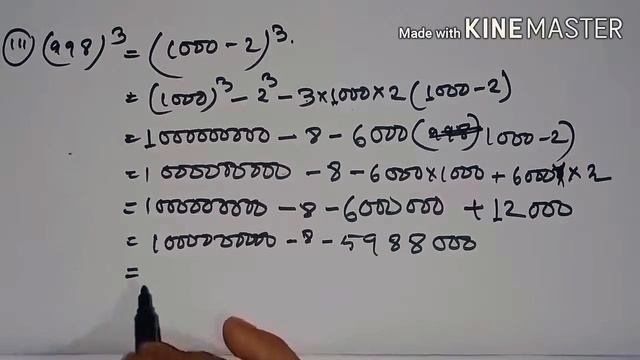 Made with KINEMASTER
(iii) (998)³ = (1000 - 2)³.
= (1000)³ - 2³ - 3×1000×2 (1000-2)
= 1000000000 - 8 - 6000 (1000-2)
= 1000000000 - 8 - 6000×1000 + 6000×2
= 1000000000 - 8 - 6000000 + 12000
= 1000000000 - 8 - 5988000
=